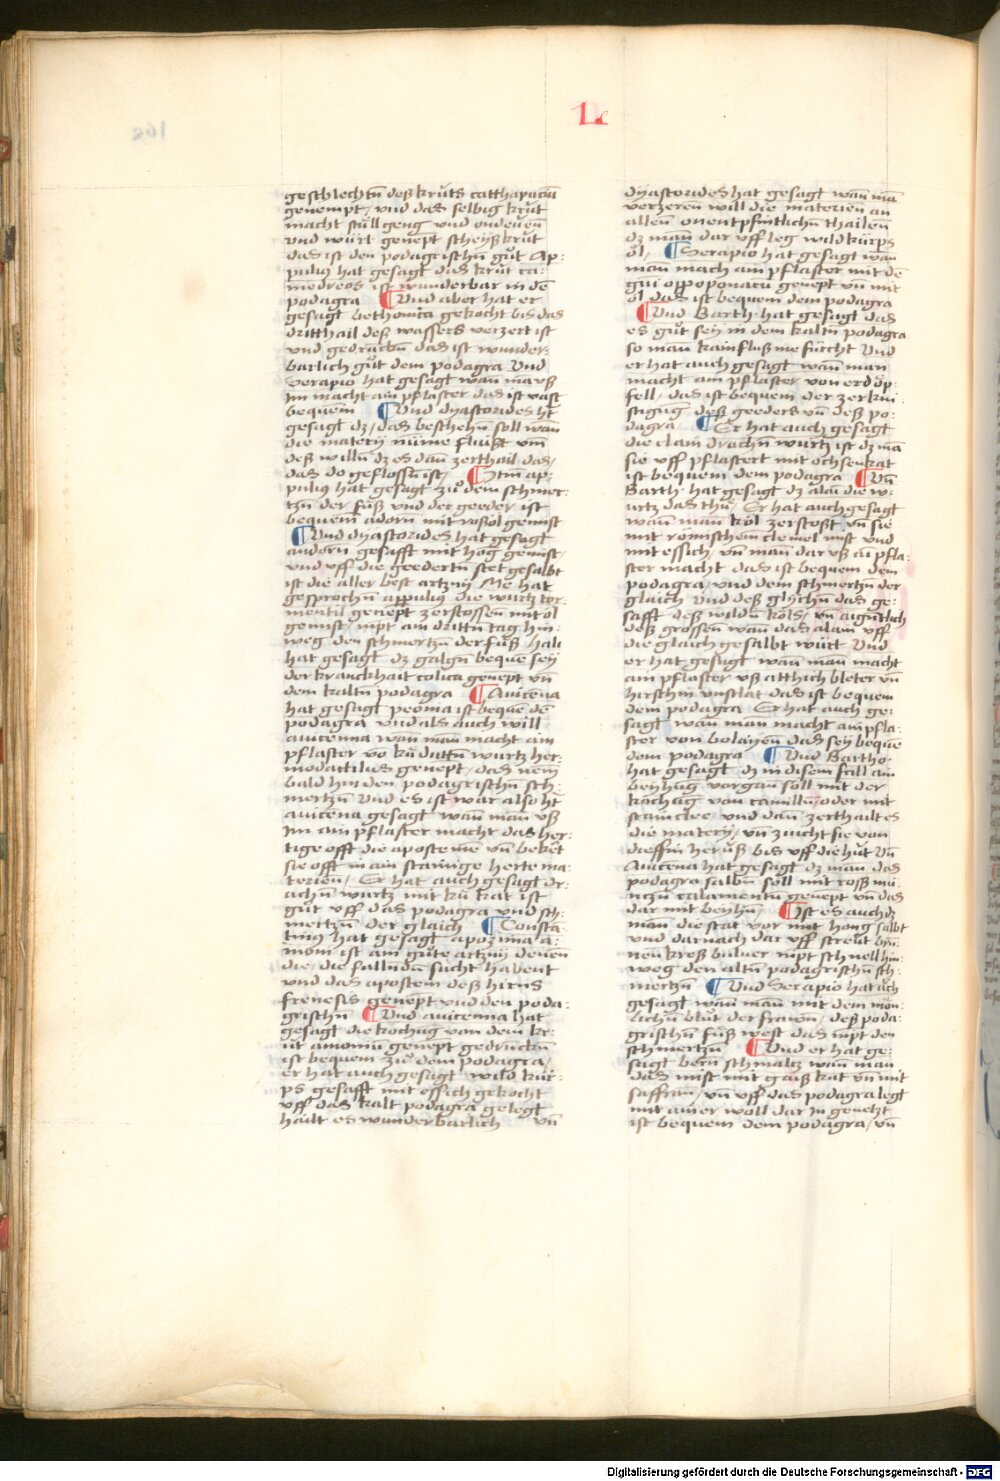 L
geschlechtn̄ deß krůts catthapuciā
genempt / vnd das selbig krut
macht stůll geng vnd ondeüen
vnd würt genēpt scheyßkrut
das ist den podagrischn̄ gůt Ap-
puliꝰ hat gesagt das krut ca-
medreos ist wunderbar in dē
podagra ¶ Vnd aber hat er
gesagt bethonica gekocht bis das
dritthail deß wassers verzert ist
vnd gedruckn̄ das ist wunder-
barlich gůt dem podagra Vnd
Serapio hat gesagt wan̄ mā vß
Im macht ain pflaster das ist vast
bequem ¶ Vnd dyascorides ht̄
gesagt dz / das beschehn̄ soll wan̄
die matery nüme flüßt vm̄
deß willn̄ dz es dan̄ zerthail das /
das do geflossn̄ ist / ¶ Itm̄ ap-
puliꝰ hat gesagt zů dem schmer-
tzn̄ der fůß vnd der geeder ist
bequem adorn̄ mit roßöl gemist
¶ Vnd dyascorides hat gesagt
andorn̄ gesafft mit hog gemist /
vnd vff die geedertn̄ stet gesalbt
ist die aller best artzny Me hat
gesprochn̄ appuliꝰ die wurtz tor-
mentil genēpt zerstossen̄ mit öl
gemist / nīpt am drittn̄ tag hin-
weg den schmertzn̄ der fůß hali
hat gesagt dz galgn̄ bequē sey
der kranckhait colica genēpt vn̄
dem kaltn̄ podagra ¶ Auicena
hat gesagt peōnia ist bequē dē
podagra vnd als auch will
auicenna wan̄ man̄ macht ain
pflaster vō kůduttn̄ wurtz her-
modactilus genēpt / das nem̄
bald hin den podagrischn̄ sch-
mertzn̄ Vnd es ist war also ht̄
auicēna gesagt wan̄ man vß
Im ain pflaster macht das her-
tige offt die aposteme vn̄ beket
sie offt in ain stainige herte ma-
terien / Er hat auch gesagt dr-
achn̄ wurtz mit ků kat ist
gůt vff das podagra vnd sch-
mertzn̄ der glaich ¶ Consta-
tinꝰ hat gesagt apozima a-
moni ist ain gůte artzny denen̄
die / die fallndn̄ sucht habent
vnd das apostem deß hirns
frenesis genēpt vnd den poda-
grischn̄ ¶ Vnd auicenna hat
gesagt die kochūg von dem kr-
ut amomū genēpt gedruckn̄
ist bequem zů dem podagra /
er hat auch gesagt wild kür-
ps gesafft mit essich gekocht
vff das kalt podagra gelegt
hailt es wunderbarlich vn̄
dyascorides hat gesagt wan̄ mā
verzeren will die materien̄ an
allen̄ onentpfintlichn̄ thailen̄
dz man̄ dar vff leg wild kürps
öl / ¶ Serapio hat gesagt wan̄
man̄ mach ain pflaster mit dē
gūi oppoponacū genēpt vn̄ mit
öl das ist bequem dem podagra
¶ Vnd Barth· hat gesagt das
es gůt sey in dem kaltn̄ podagra
so man̄ kain fluß me fürcht Vnd
er hat auch gesagt wan̄ man
macht ain pflaster von erdöp-
fell / das ist bequem der zerkni-
stigūg deß geeders vn̄ deß po-
dagra ¶ Er hat auch gesagt
die clain drachn̄ wurtz ist dz mā
sie vff pflastert mit ochsen kat
ist bequem dem podagra ¶ Vn̄
Barth· hat gesagt dz alan̄ die w-
urtz das thů / Er hat auch gesagt
wan̄ man̄ köl zerstoßt vn̄ sie
mit römischem clemel mist vnd
mit essich / vn̄ man̄ dar vß ain pfla-
ster macht das ist bequem dem
podagra / vnd dem schmertzn̄ der
glaich Vnd deß glychn̄ das ge-
safft deß wildn̄ köls / vn̄ aigntlich
deß grossen̄ wan̄ das alain vff
die glaich gesalbt würt Vnd
er hat gesagt wan̄ man̄ macht
ain pflaster vß atthich bleter vn̄
hirschin vnslat das ist bequem
dem podagra Er hat auch ge-
sagt wan̄ man̄ macht ain pfla-
ster von bolayen̄ das sey bequē
dem podagra ¶ Vnd Bartho·
hat gesagt dz in disem fall ain
beyhūg vorgan̄ soll mit der
kochūg von camilln̄ / oder mit
stainclee / vnd dan̄ zerthailt es
die matery / vn̄ zücht sie von
dieffin herůß bis vff die hut Vn̄
Auicēna hat gesagt dz man̄ das
podagra salbn̄ soll mit roß mü-
nczn̄ calamentū genēpt vn̄ das
dar mit beyhn̄ / ¶ Ist es auch dz
man̄ die stat vor mit hong salbt
vnd darnach dar vff streut brū-
nen kreß buluer nīpt schnell hin-
weg den altn̄ podagrischn̄ sch-
mertzn̄ ¶ Vnd Serapio hat och
gesagt wan̄ man̄ mit dem mon-
lichn̄ blůt der frawen̄ / deß poda-
grischn̄ fůß west das nīpt den
schmertzn̄ ¶ Vnd er hat ge-
sagt bern̄ schmaltz wan̄ man
das mist mit gaiß kat vn̄ mit
saffran / vn̄ vff das podagra legt
mit ainer woll dar in genetzt
ist bequem dem podagra / vn̄
Digitalisierung gefördert durch die Deutsche Forschungsgemeinschaft - DFG